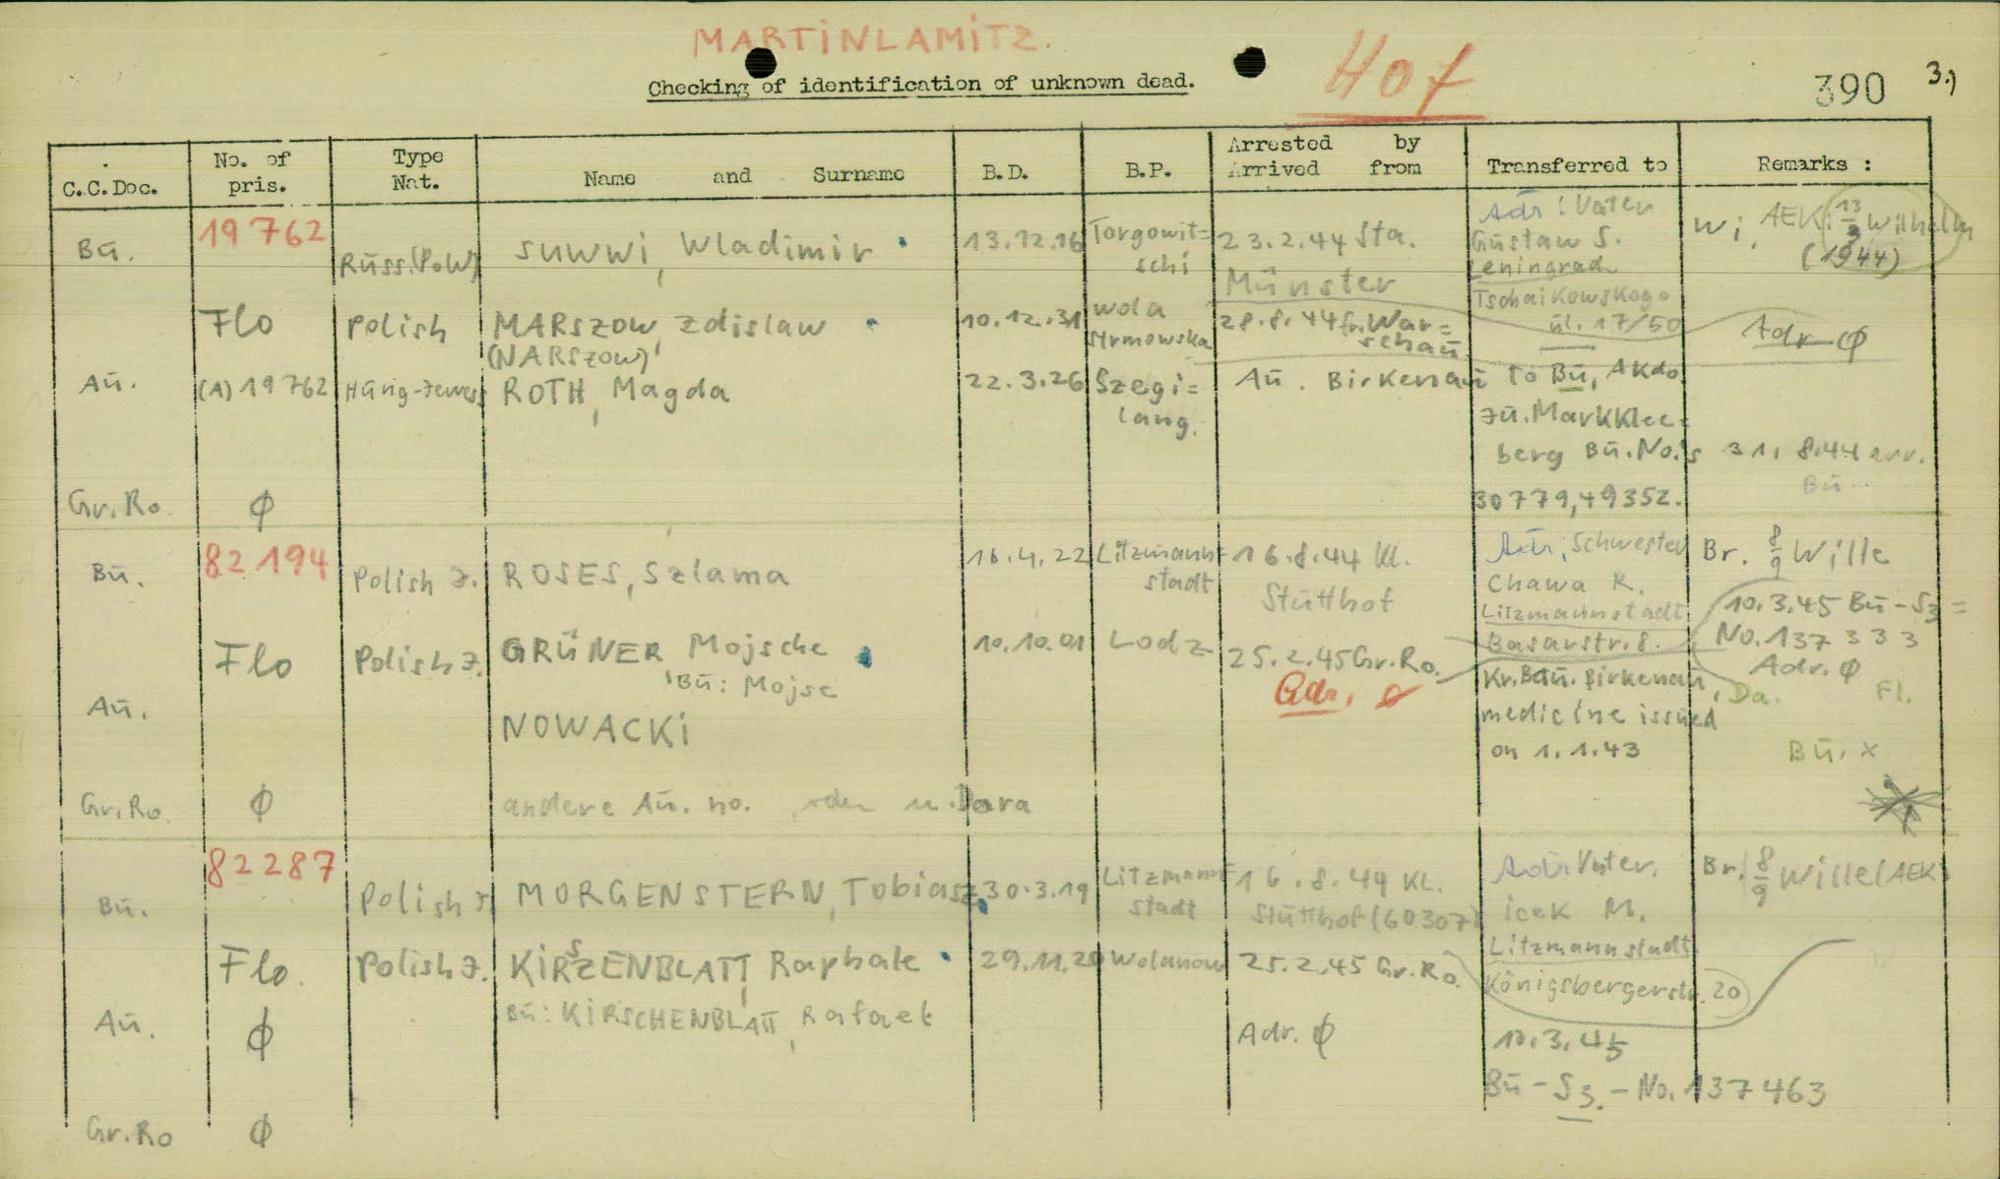 MARTINLAMITZ.
Checking of identification of unknown dead.
Hof
390 3.)
C.C.Doc. No. of pris. Type Nat. Name and Surname B.D. B.P. Arrested by Arrived from Transferred to Remarks :
Bū. 19762 Russ.(PoW) SUWWI, Wladimir 13.12.16 Torgowit=
schi 23.2.44 Sta.
Münster
Adr: Vater
Gustaw S.
Leningrad
Tschaikowskogo
ul. 17/50
Wi. AEK: 13/3 Wilhelm
(1944)
Flo Polish MARSZOW, Zdislaw
(NARSZOW)
10.12.31 Wola
Srmowska
28.8.44 fr. War=
schau
Adr. ϕ
Aū. (A)19762 Hung-Jewess ROTH, Magda 22.3.26 Szegi=
lang.
Aū. Birkenau to Bū, AKdo
zu. Markklee=
berg Bū.No.s 31.8.44 arr.
Bū.
30779, 49352.
Gr.Ro ϕ
Bū. 82194 Polish J. ROSES, Szlama 16.4.22 Litzmann=
stadt
16.8.44 Kl.
Stutthof
Adr. Schwester
Chawa R.
Litzmannstadt
Basarstr. 8.
Br. 8/9 Wille
Flo Polish J. GRÜNER Mojsche
Bū: Mojse
10.10.01 Lodz 25.2.45 Gr.Ro.
Adr. ϕ
10.3.45 Bū-S3=
No. 137333
Adr. ϕ
Aū. NOWACKI
Kr.Bau. Birkenau,
medicine issued
on 1.1.43
Da. Fl.
Bū. x
Gr.Ro. ϕ andere Aū. no. oder
Bū. 82287 Polish J. MORGENSTERN, Tobiasz 30.3.19 Litzmann=
stadt
16.8.44 KL.
Stutthof (60307)
Adr. Vater.
Icek M.
Litzmannstadt
Königsbergerstr. 20
Br. 8/9 Wille (AEK)
Flo. Polish J. KIRSZENBLATT, Raphale 29.11.20 Wolanow 25.2.45 Gr.Ro.
Bū: KIRSCHENBLATT, Rafael
Aū. ϕ Adr. ϕ 10.3.45
Bū-S3.-No. 137463
Gr.Ro ϕ